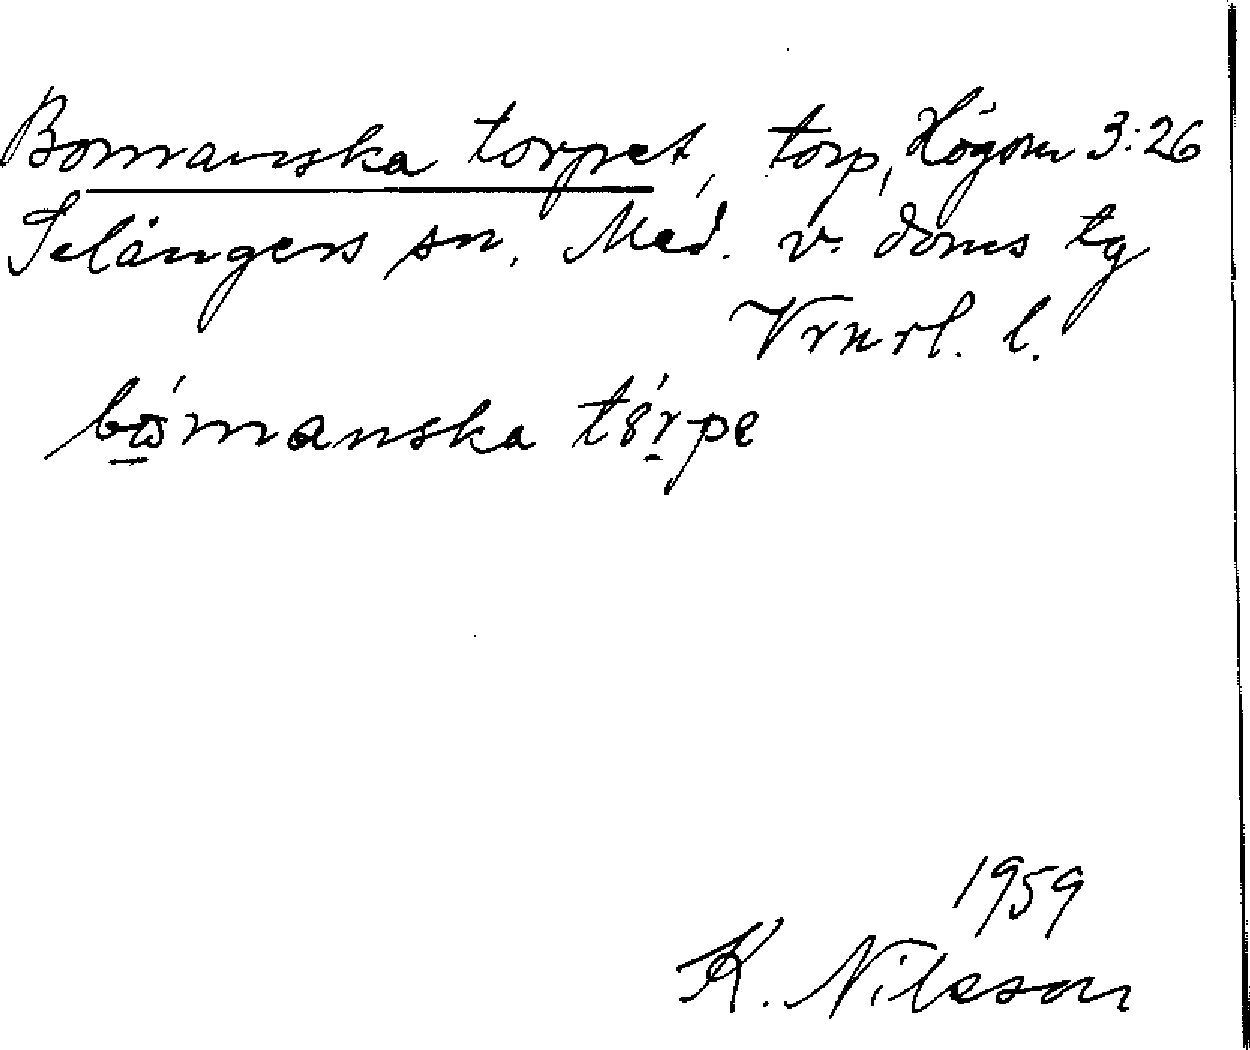 Bomanska torpet, torp, Högom 3:26
Selångers sn. Med. v. doms tg
Vrnrl. l.
bómanska tórpe
1959
K. Nilsson